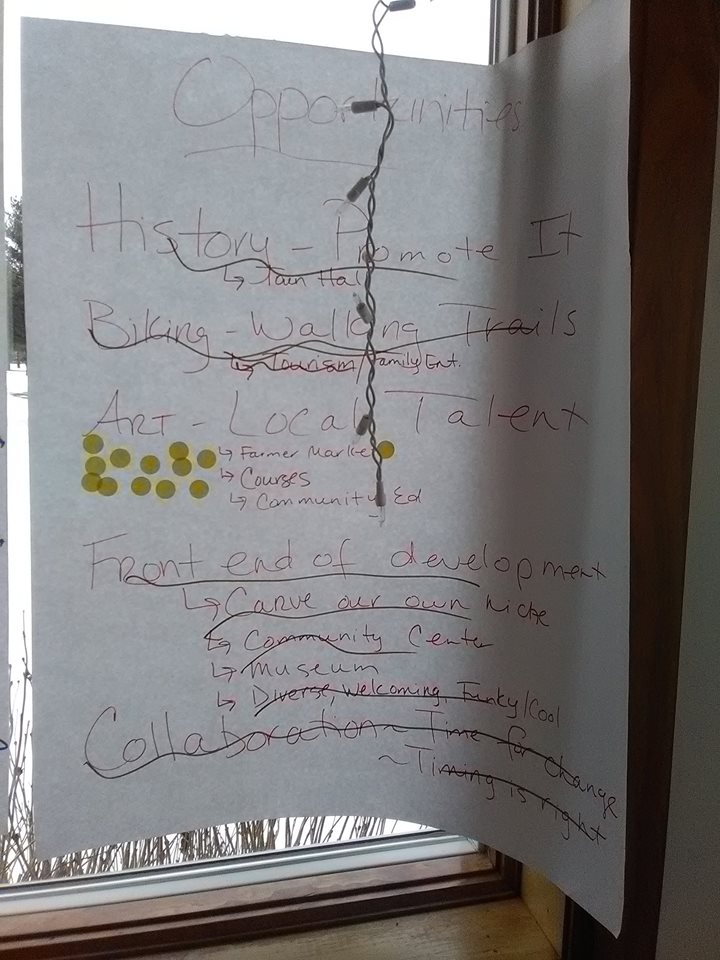 Opportunities
History - Promote It
↳ Tain Hall
Biking - Walking Trails
↳ Tourism/Family Ent.
Art - Local Talent
↳ Farmer Market
↳ Courses
↳ Community Ed
Front end of development
↳ Carve our own niche
↳ Community Center
↳ Museum
↳ Diverse, Welcoming, Funky/Cool
Collaboration ~ Time for change
~ Timing is right